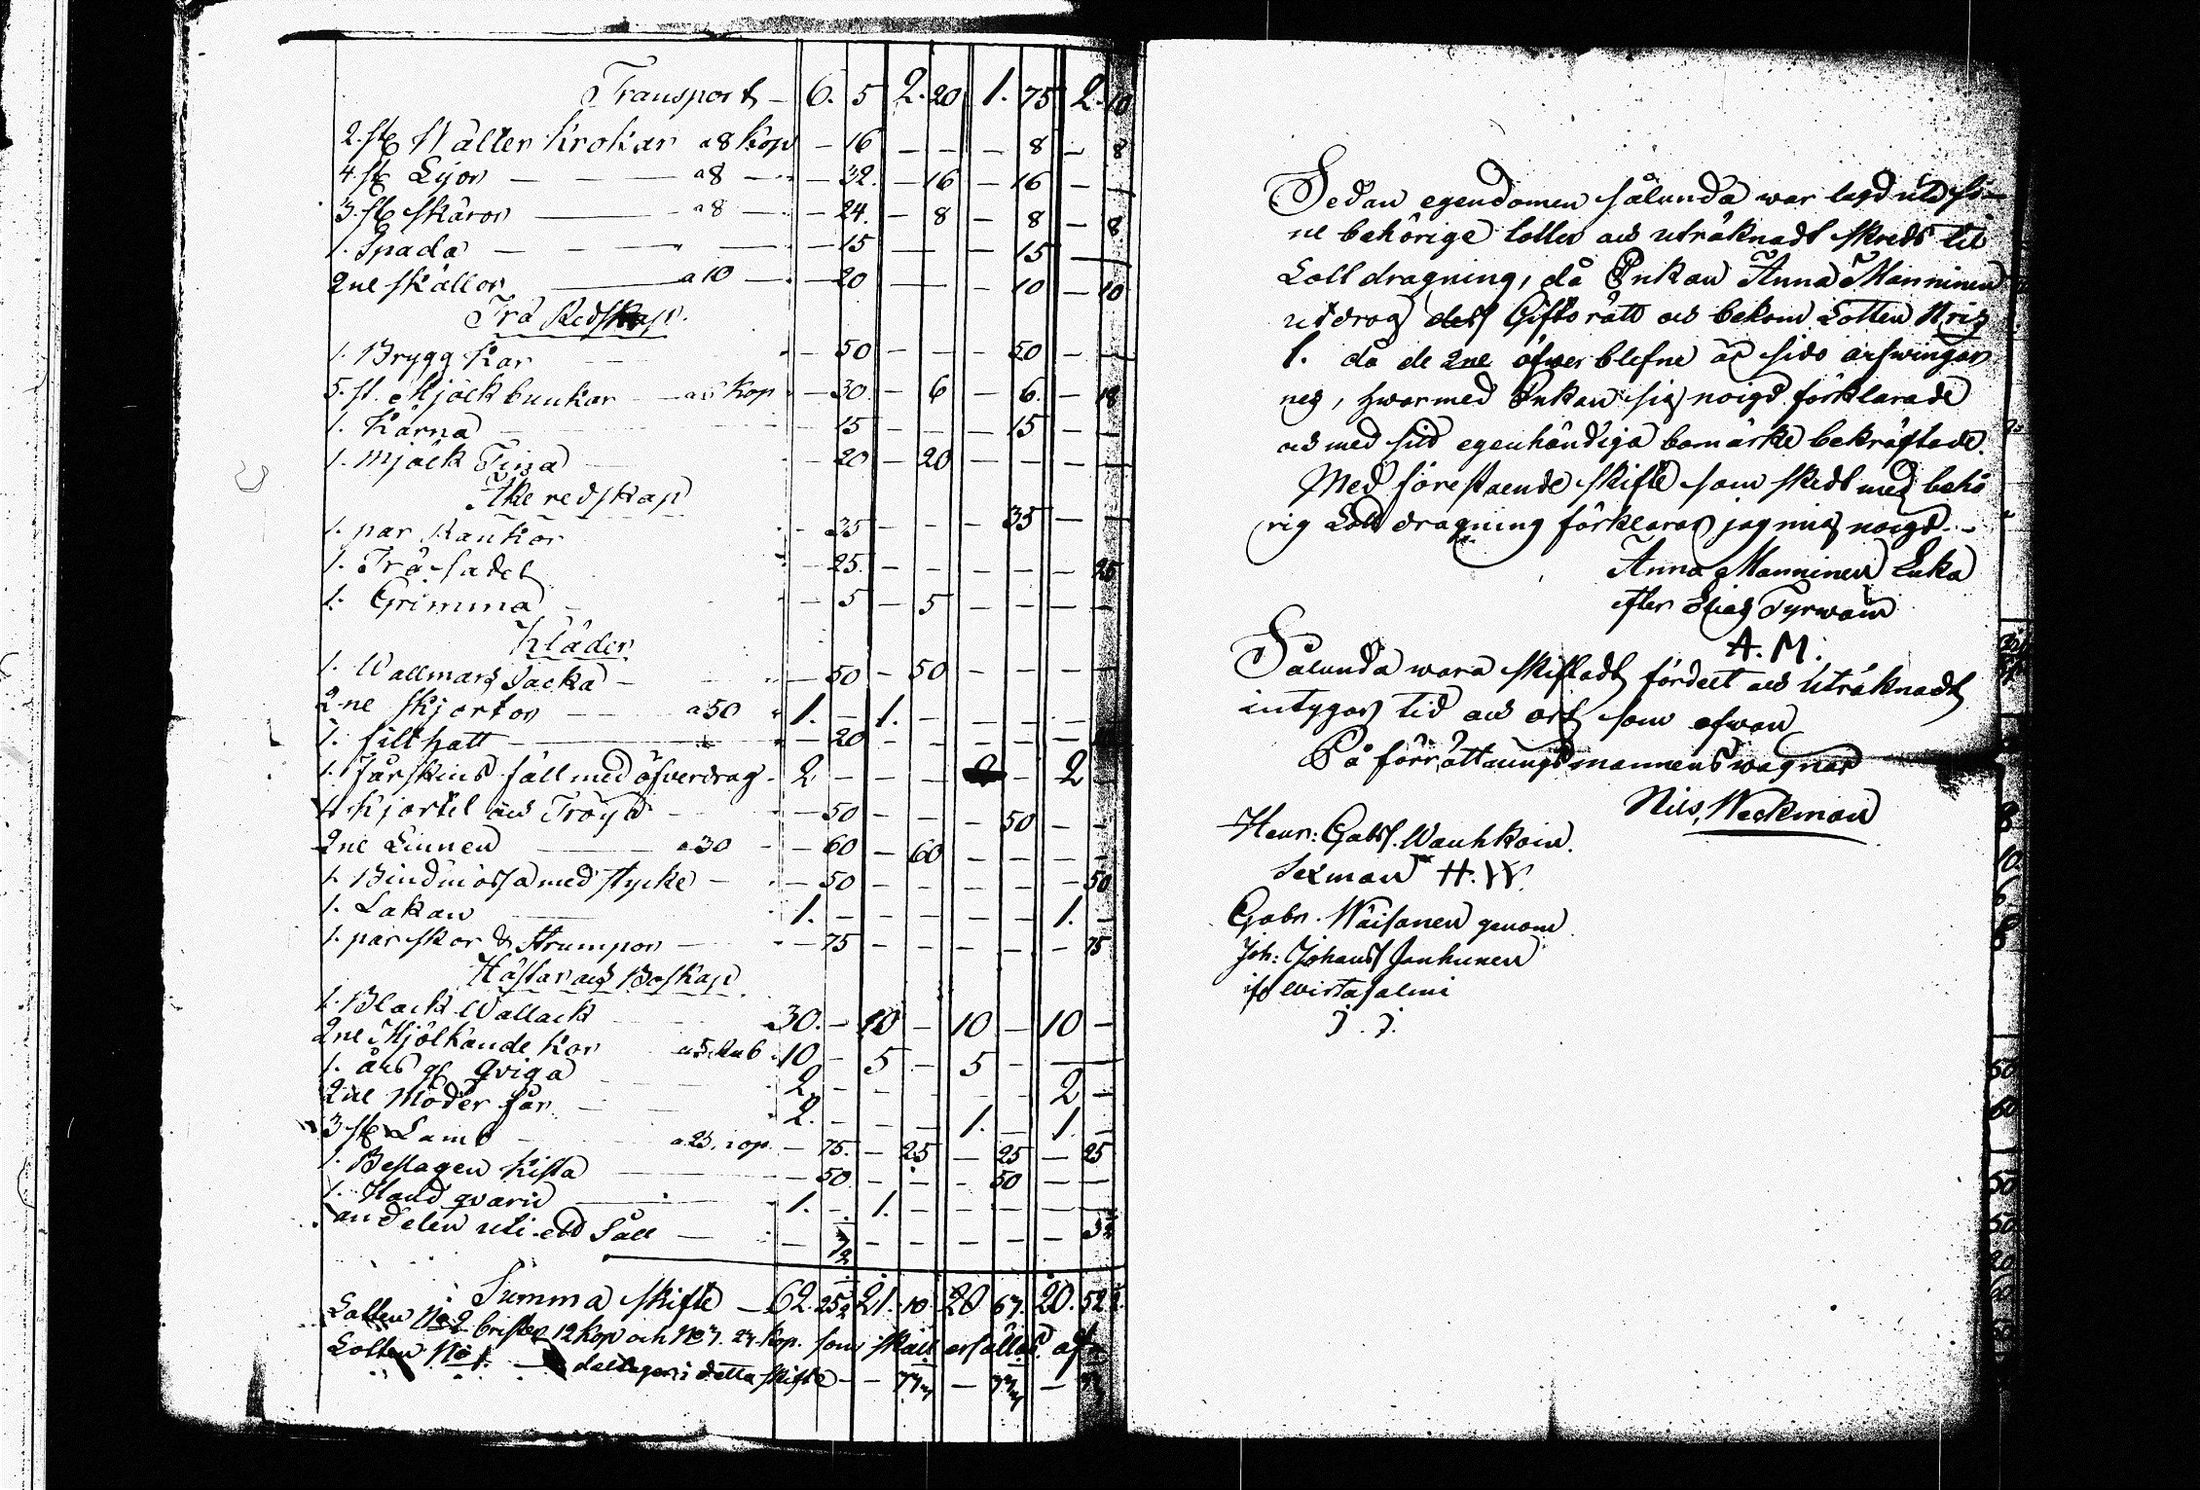 Transport - 6. 5 2. 20 1. 75 2. 10
2. st Wälter Krokar a 8 kop - 16 - - - 8 - 8
4. st Lijor - - - a 8 - - 32. - 16 - 16 - -
3. st skäror a 8 - - 24. - 8 - 8 - 8
1. Spada - - - 15 - - - 15 - -
2ne skällor a 10 - - 20 - - - 10 - 10
Trä Redskap.
1. Brygg Kar - 50 - - - 50 - -
5. st. Mjölk bunkar a 6 kop - 30 - 6 - 6. - 18
1. Kärna - 15 - - - 15 - -
1. Mjölk Tina - 20 - 20 - - - -
Åke redskap
1. par Kankor - 35 - - - 35 - -
1. Trä sadel - 25. - - - - - 25
1. Grimma - 5 - 5 - - - -
Kläder
1. Wallmars Jacka - - 50 - 50 - - - -
2ne skjortor - - a 50 1. - 1. - - - - -
1. filt hatt - - 20 - - - - -
1. Fårskins fäll med öfverdrag - 2 - - - - 2 -
1 Kjortel aus Tröija - 50 - - - 50 - -
2ne Linnen a 30 - 60 - 60 - - - -
1. Bindmössa med stycke - - 50 - - - - - 50
1. Lakan 1. - - - - - 1. -
1. par skor & Strumpor - - 75 - - - - - 75
Hästar och Boskap
1. Black Wallack 30. - 10 - 10 - 10 -
2ne Mjölkande Kor a 5 Rub. 10 - 5 - 5 - -
1. års gl Qviga 2 - - - - - 2 -
2ne Moder får - 2. - - - 1. - 1. -
3 st Lamb a 25. kop - 75. - 25 - 25 - 25
1. Beslagen Kista - 50. - - - 50 - -
1. Hand qvarn 1. - 1. - - - - -
andelen uti ett Såll - - - - - - -
Summa skifte - 62. 25½ 21. 10. 20 67. 20. 52½.
Lotten No 2 brister 12 kop och No 3. 27 kop. som skall ersättas af
Lotten No 1. deltager i detta skifte - -
Sedan egendomen sålunda war lagd uti si-
ne behörige lotter och uträknadt skreds till
Lott dragning, då Enkan Anna Manninen
utdrog dess Giftorätt och bekom Lotten No
1. då de 2ne öfver blefne
, hwarmed Enkan sig noigd förklarade
och med sitt egenhändiga bomärke bekräftade.
Med förestaende skifte som skedt med behö
rig Lott dragning förklarar jag mig noigd. -
Anna Manninen Enka
efter Elias Tyrwäin
A. M.
Sålunda wara skiftadt fördelt och Uträknadt
intygar tid och ort som ofwan
På förrättningsmannens wägnar
Nils Weckman
Henr: Gabrs. Wauhkoin.
Sexman H. W.
Gabr. Wäisanen genom
Joh: Johanss Jauhunen
ifr Wirtasalmi
J. J.